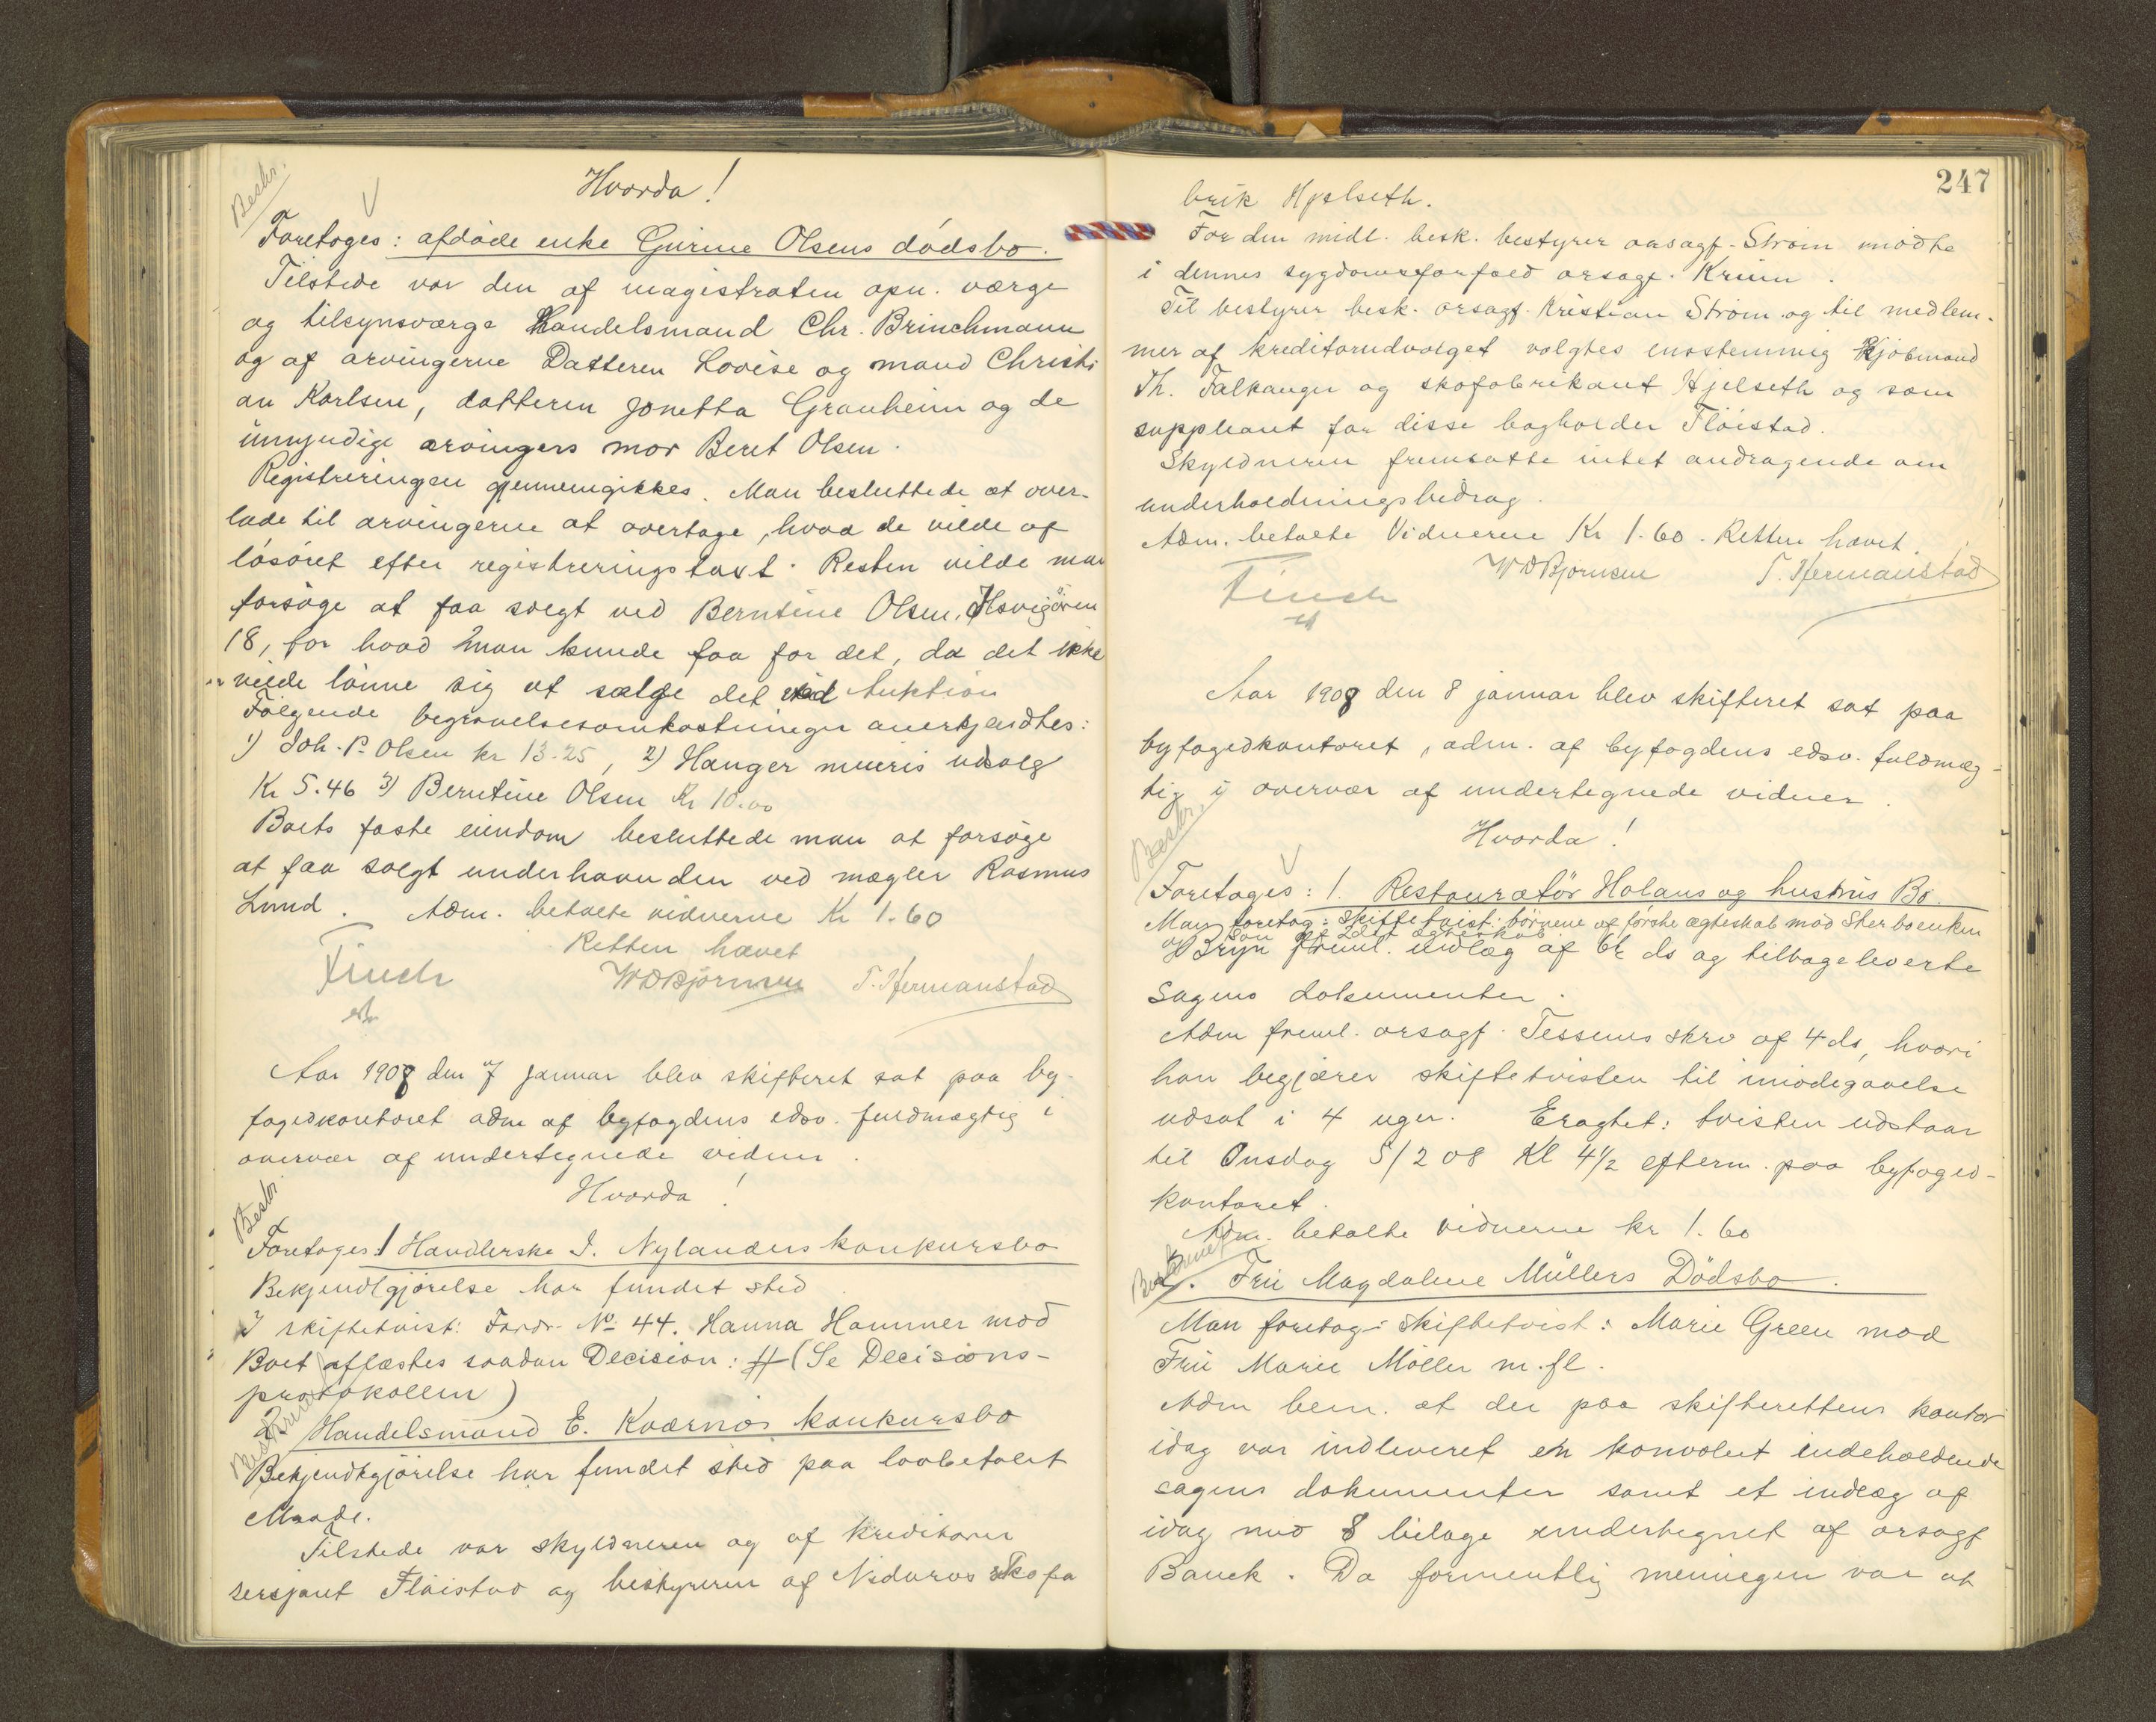 Beskr.
Hvorda!
Foretoges: afdöde enke Gurine Olsens dödsbo.
Tilstede var den af magistraten opn. værge
og tilsynsværge Handelsmand Chr. Brinchmann
og af arvingerne Datteren Lovise og mand Christi
an Karlsen, datteren Jonetta Granheim og de
umyndige arvingers mor Beret Olsen.
Registreringen gjennemgikkes. Man besluttede at over-
lade til arvingerne at overtage, hvad de vilde af
lösöret efter registreringstaxt. Resten vilde man
forsöge at faa solgt ved Berntine Olsen, Ilsvigören
18, for hvad man kunde faa for det, da det ikke
vilde lönne sig at sælge det ved Auktion
Fölgende begravelsesomkostninger anerkjendtes:
1) Joh. P. Olsen kr 13.25, 2) Hanger udlæg
Kr 5.46 3) Berntine Olsen Kr 10.00
Boets faste eiendom besluttede man at forsöge
at faa solgt underhaanden ved mægler Rasmus
Lund. Adm. betalte vidnerne Kr 1.60
Retten hævet
Finch W D Bjørnsen T. Hermanstad
Aar 1908 den 7 januar blev skifteret sat paa by-
fogedkontoret adm af byfogdens edsv. fuldmægtig i
overvær af undertegnede vidner.
Hvorda!
Beskr.
Foretoges: 1 Handlerske I. Nylanders konkursbo
Bekjendtgjörelse har fundet sted
I skiftetvist: Fordr. No 44. Hanna Hammer mod
Boet aflæstes saadan Decision: # (Se Decisions-
protokollen)
Beskrevet
2. Handelsmand E. Kværnös konkursbo
Bekjendtgjörelse har fundet sted paa lovbefalet
Maade.
Tilstede var skyldneren og af kreditorer
sersjant Flöistad og bestyreren af Nidaros skofa
247
brik Hjelseth.
For den midl. besk. bestyrer orsagf. Ström mödte
i dennes sygdomsforfald orsagf. Krum.
Til bestyrer besk. orsagf. Kristian Ström og til medlem-
mer af kreditorudvalget valgtes enstemmig Kjöbmand
Th. Falkanger og skofabrikant Hjelseth og som
suppleant for disse bogholder Flöistad.
Skyldneren fremsatte intet andragende om
underholdningsbidrag.
Adm. betalte Vidnerne Kr 1.60. Retten hævet.
Finch W D Bjørnsen T. Hermanstad
Aar 1908 den 8 januar blev skifteret sat paa
byfogedkontoret, adm. af byfogdens edsv. fuldmæg-
tig i overvær af undertegnede vidner.
Hvorda!
Beskr.
Foretoges: 1. Restauratör Holans og hustrus Bo.
Man foretog: skiftetvist: börnene af förste ægteskab mod Sterboenken
og sön af 2det ægteskab
O Bryn freml. indlæg af 6te ds og tilbageleverte
sagens dokumenter.
Adm freml. orsagf. Tessems skrv af 4 ds, hvori
han begjærer skiftetvisten til imödegaaelse
udsat i 4 uger. Eragtet: tvisten udstaar
til Onsdag 5/2 08 Kl 4½ efterm. paa byfoged-
kontoret.
Adm. betalte vidnerne kr 1.60
Beskrevet
2. Fru Magdalene Müllers Dödsbo.
Man foretog: skiftetvist: Marie Green mod
Fru Marie Möller m.fl.
Adm bem. at der paa skifterettens kontor
idag var indleveret en konvolut indeholdende
sagens dokumenter samt et indlæg af
idag med 8 bilage undertegnet af orsagf
Banck. Da formentlig meningen var at